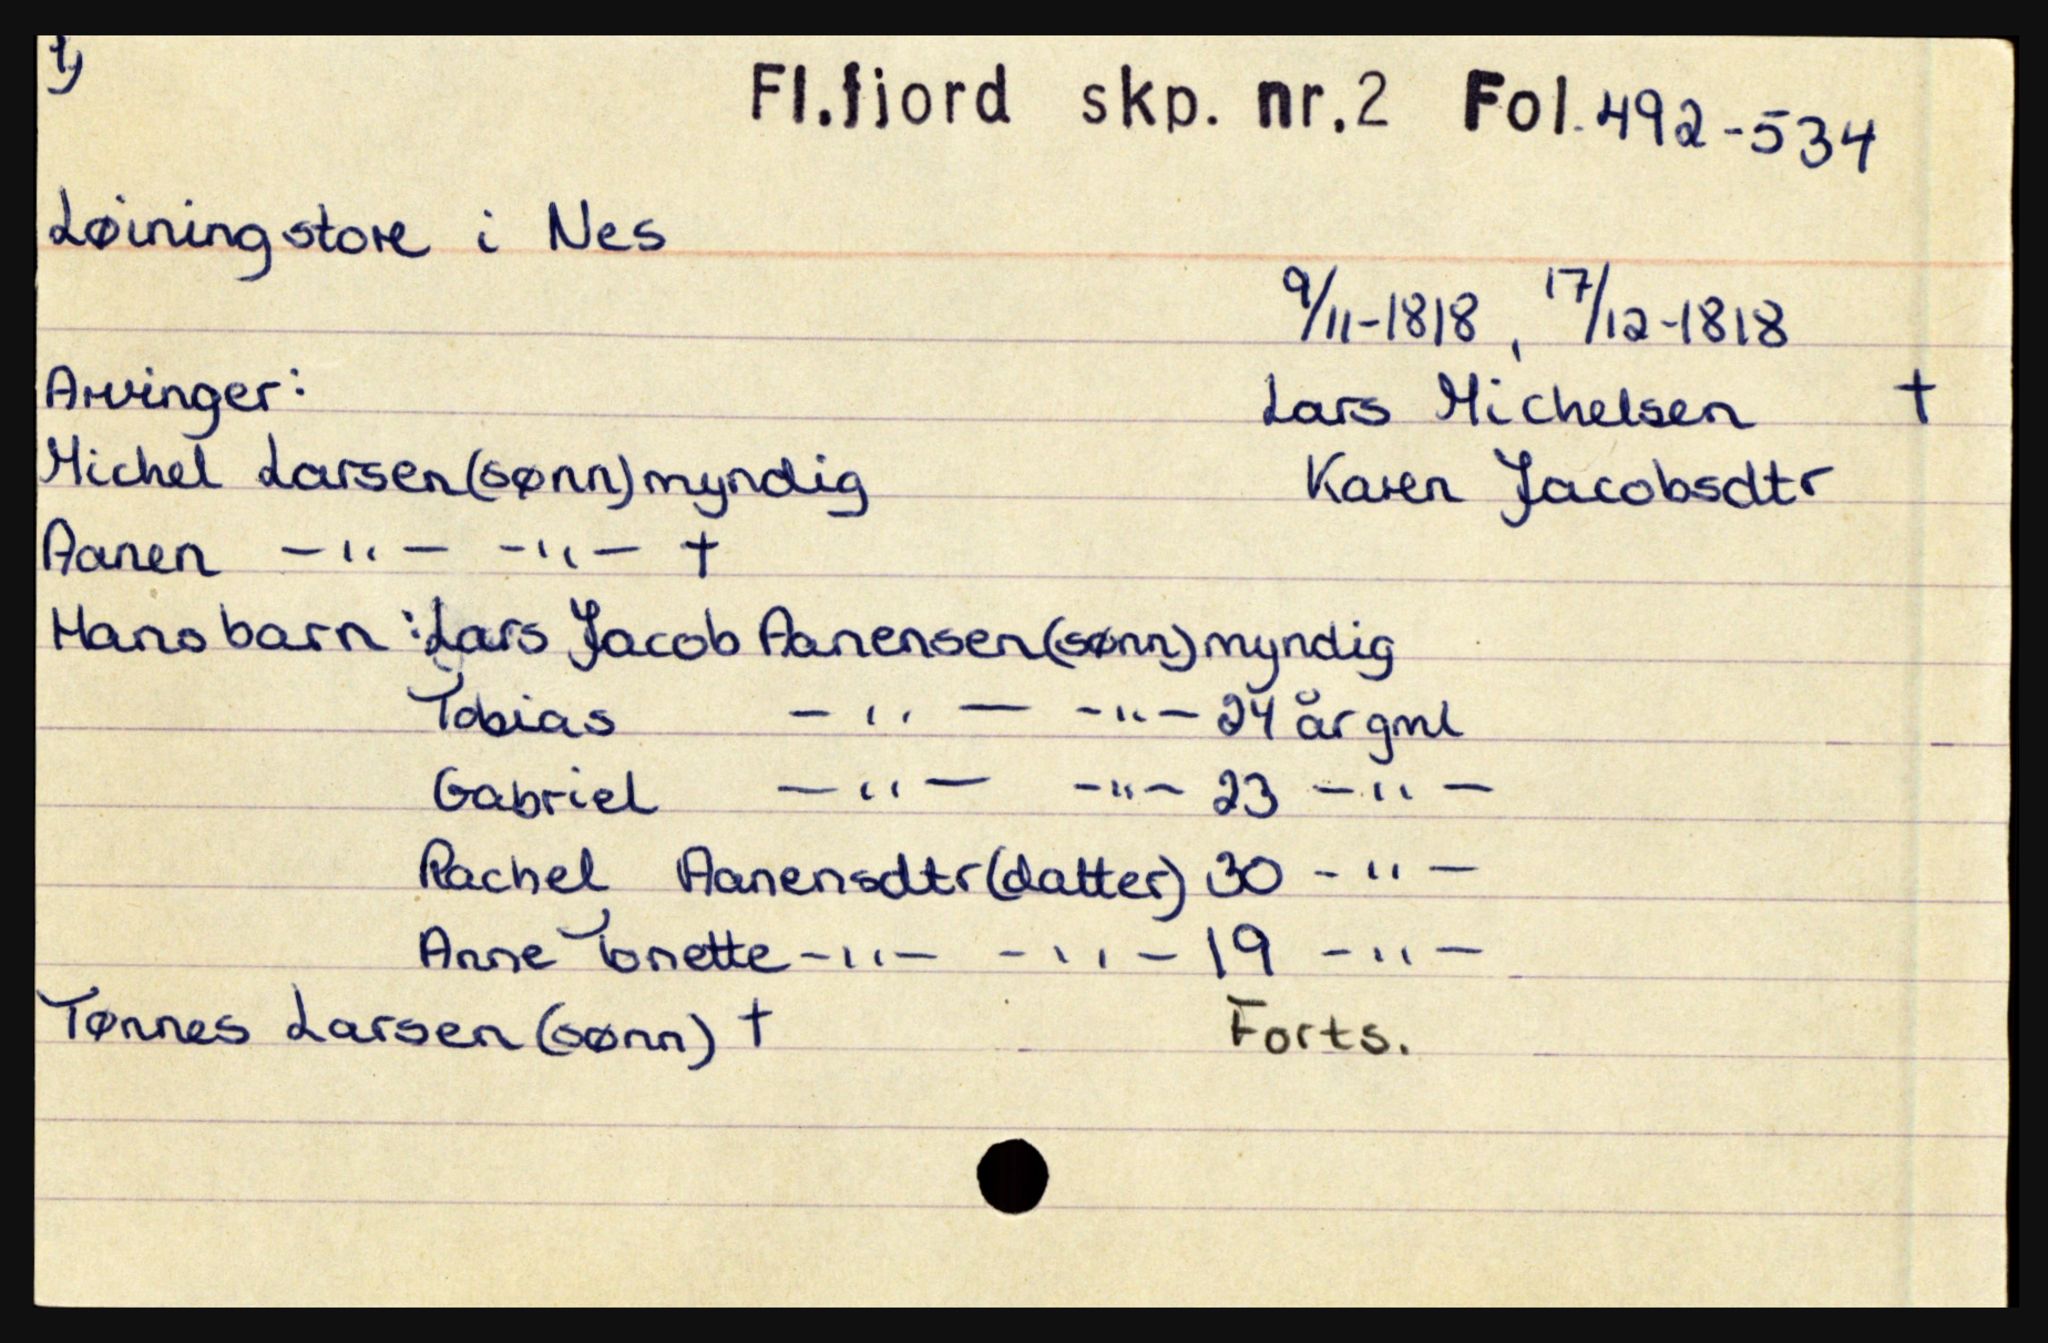 1)
Fl.fjord skp. nr.2 Fol. 492-534
Løiningstore i Nes
9/11-1818, 17/12-1818
Arvinger: Lars Michelsen †
Michel Larsen (sønn) myndig Karen Jacobsdtr
Aanen —"— —"— †
Hans barn: Lars Jacob Aanensen (sønn) myndig
Tobias —"— —"— 24 år gml
Gabriel —"— —"— 23 —"—
Rachel Aanensdtr (datter) 30 —"—
Anne Tonette —"— —"— 19 —"—
Tønnes Larsen (sønn) † Forts.